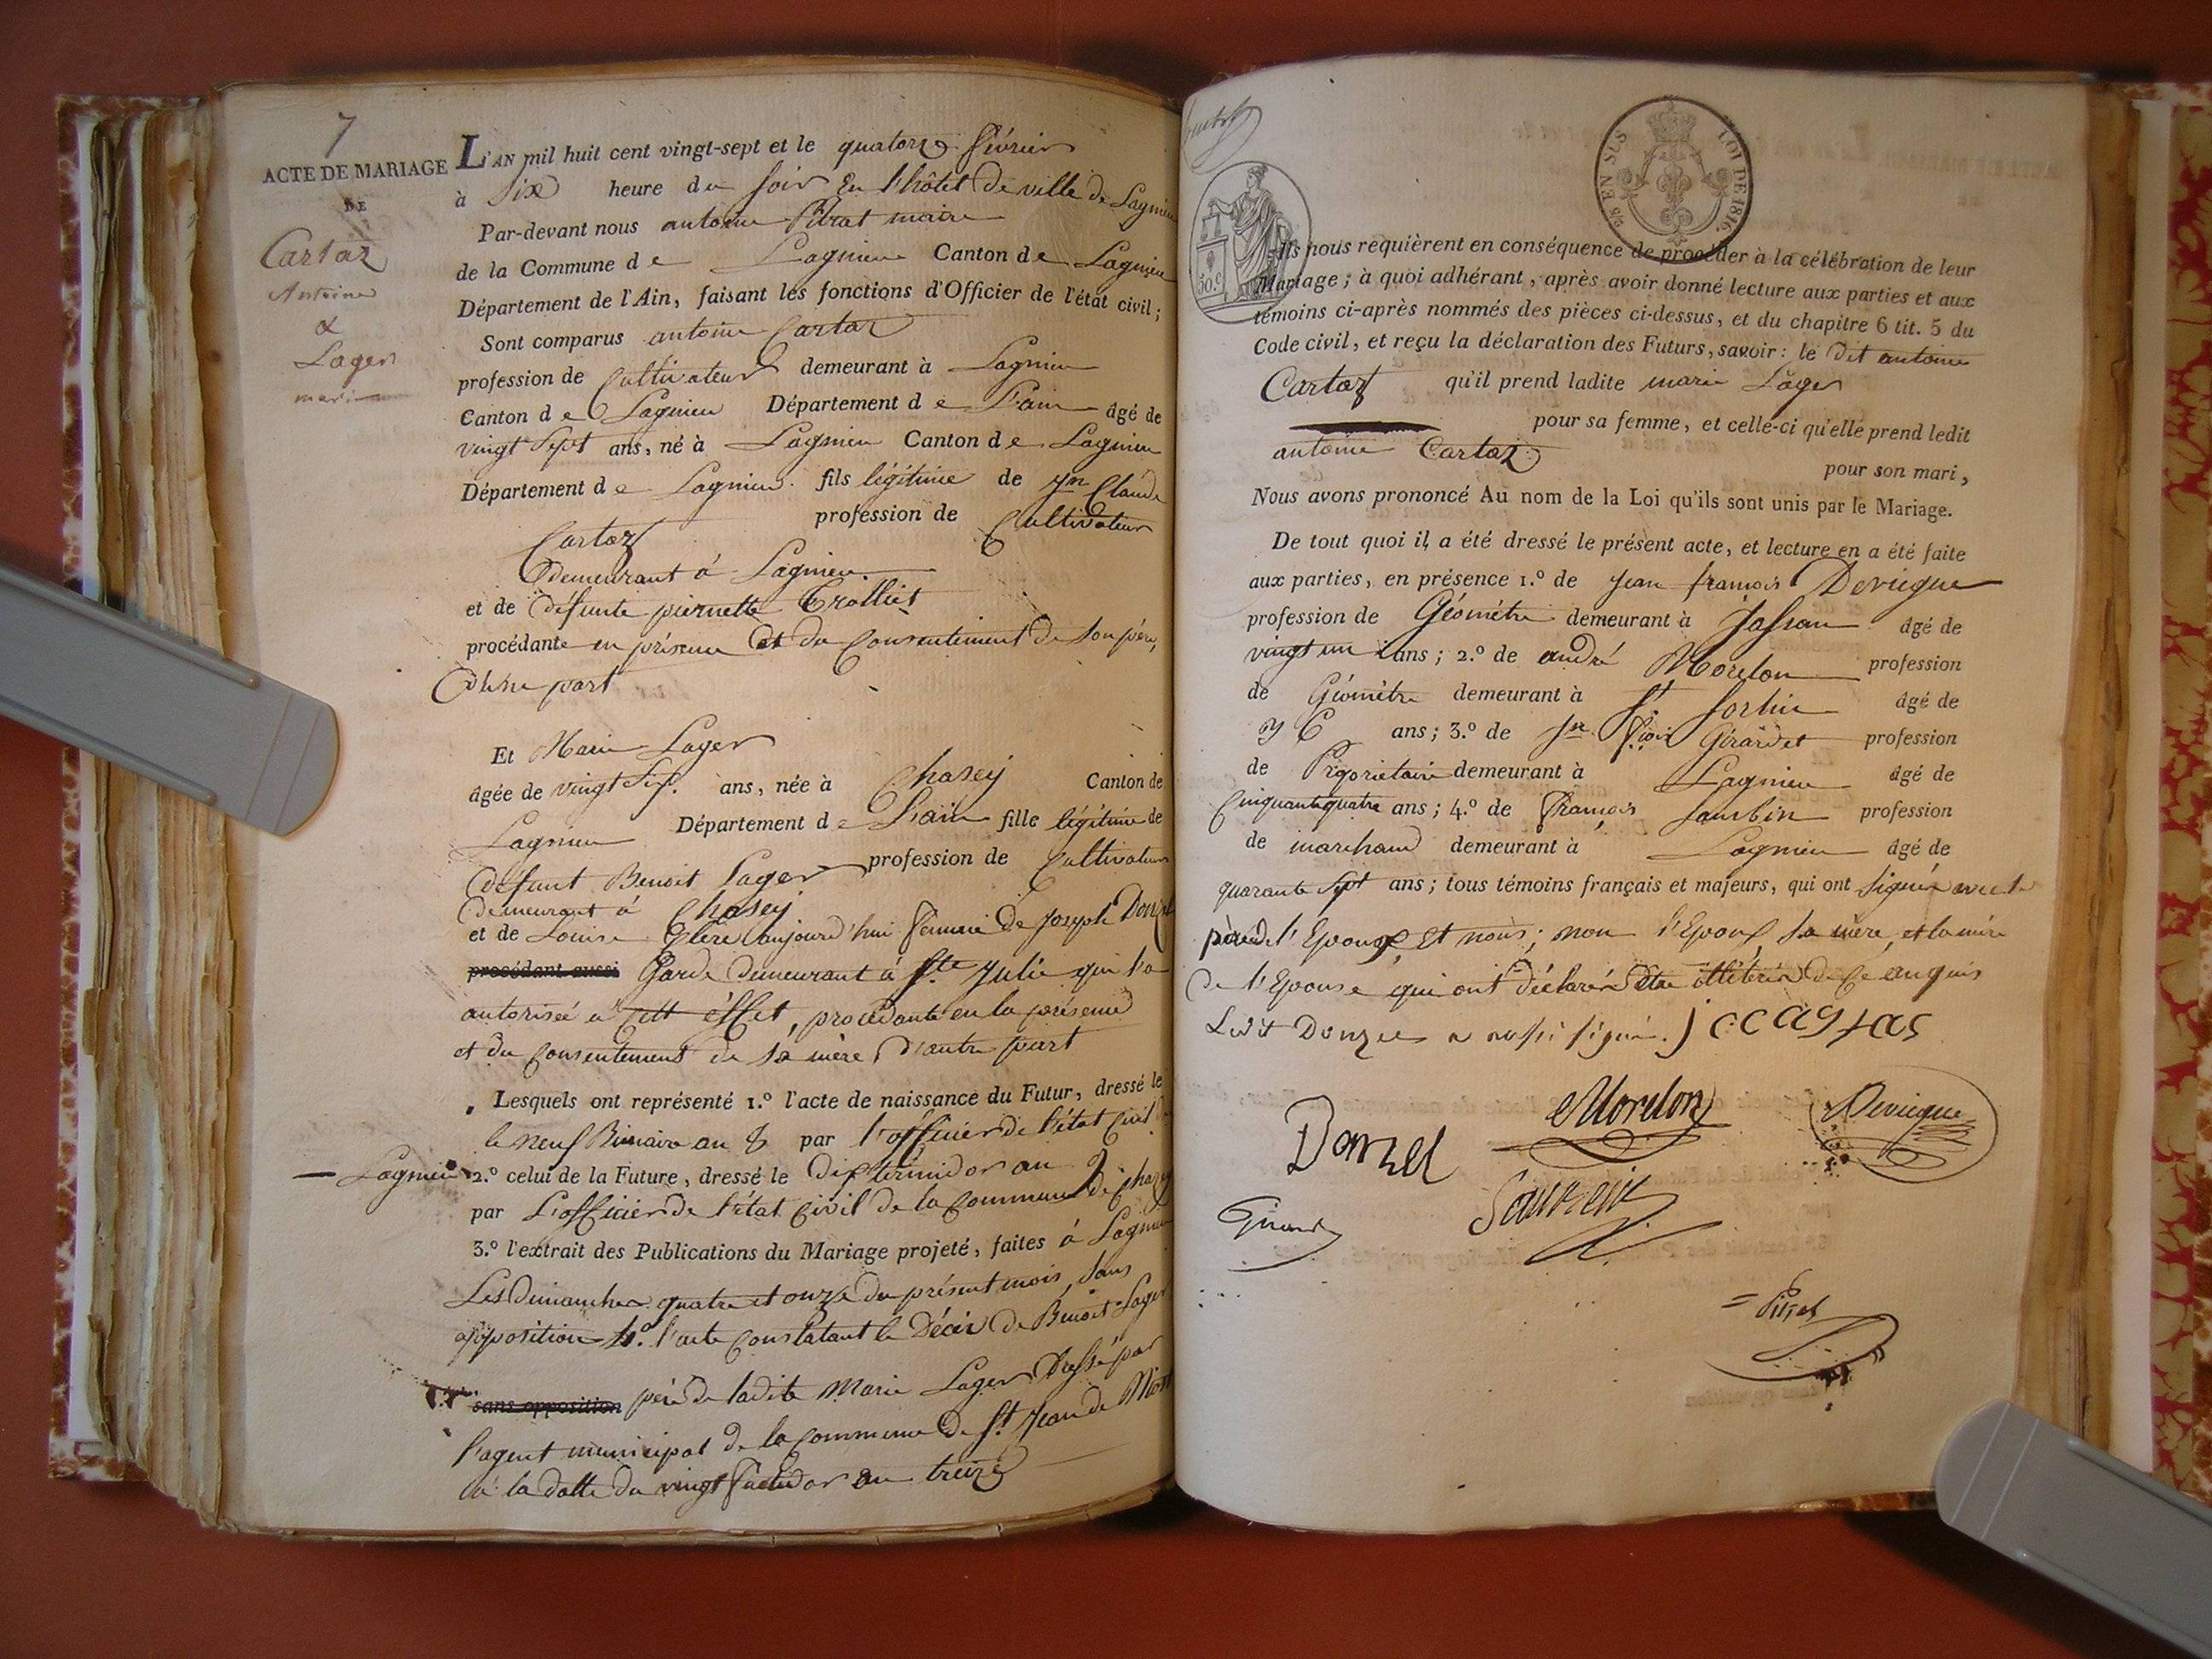 7
ACTE DE MARIAGE
DE
Cartaz
Antoine
&
Lager
marie
L'AN mil huit cent vingt-sept et le quatorze février
à Six heure du soir En l'hôtel de ville de Lagnieu
Par-devant nous antoine Pitrat maire
de la Commune de Lagnieu Canton de Lagnieu
Département de l'Ain, faisant les fonctions d'Officier de l'état civil;
Sont comparus antoine Cartaz
profession de Cultivateur demeurant à Lagnieu
Canton de Lagnieu Département de L'ain âgé de
vingt Sept ans, né à Lagnieu Canton de Lagnieu
Département de Lagnieu fils légitime de Jn Claude
Cartaz profession de Cultivateur
demeurant à Lagnieu
et de défunte pierrette Trolliet
procédante en présence et du Consentement de son père,
d'une part
Et Marie Lager
âgée de vingt Six ans, née à Chasey Canton de
Lagnieu Département de L'ain fille légitime de
défunt Benoit Lager profession de Cultivateur
demeurant à Chasey
et de Louise aujourd'hui femme de Joseph Donzel
procédant aussi Garde demeurant à Ste Julie qui l'a
autorisée à cett éffet, procédante en la présence
et du Consentement de sa mère d'autre part
Lesquels ont représenté 1.º l'acte de naissance du Futur, dressé le
le neuf Brumaire an 8 par l'officier de l'état Civil
Lagnieu 2.º celui de la Future, dressé le Dix termidor an
par L'officier de l'état Civil de la Commune de Chazey
3.º l'extrait des Publications du Mariage projeté, faites à Lagnieu
Les Dimanches quatre et onze du présent mois, sans
opposition 4.º l'acte Constatant le Décès de Benoit Lager
sans opposition père de ladite Marie Lager Dressé par
l'agent municipal de la Commune de St Jean de
à la datte du vingt fructidor an treize
50 c.
EN SUS
LOI DE 1816.
Ils nous requièrent en conséquence de procéder à la célébration de leur
Mariage; à quoi adhérant, après avoir donné lecture aux parties et aux
témoins ci-après nommés des pièces ci-dessus, et du chapitre 6 tit. 5 du
Code civil, et reçu la déclaration des Futurs, savoir: le dit antoine
Cartaz qu'il prend ladite marie Lager
pour sa femme, et celle-ci qu'elle prend ledit
antoine Cartaz pour son mari,
Nous avons prononcé Au nom de la Loi qu'ils sont unis par le Mariage.
De tout quoi il a été dressé le présent acte, et lecture en a été faite
aux parties, en présence 1.º de Jean françois Devicque
profession de Géomètre demeurant à âgé de
vingt un ans; 2.º de andré Morelon profession
de Géomètre demeurant à St Sorlin âgé de
ans; 3.º de Jn Girardet profession
de Proprietaire demeurant à Lagnieu âgé de
Cinquante quatre ans; 4.º de François profession
de marchand demeurant à Lagnieu âgé de
quarante Sept ans; tous témoins français et majeurs, qui ont Signé avec le
père de l'Epoux, Et nous; non l'Epoux, sa mère, et la mère
de l'Epouse qui ont déclaré être illitérés de Ce enquis
Ledit Donzel a aussi signé. J C Cartas
Donzel
Morelon
Devicque
Girard
Pitrat